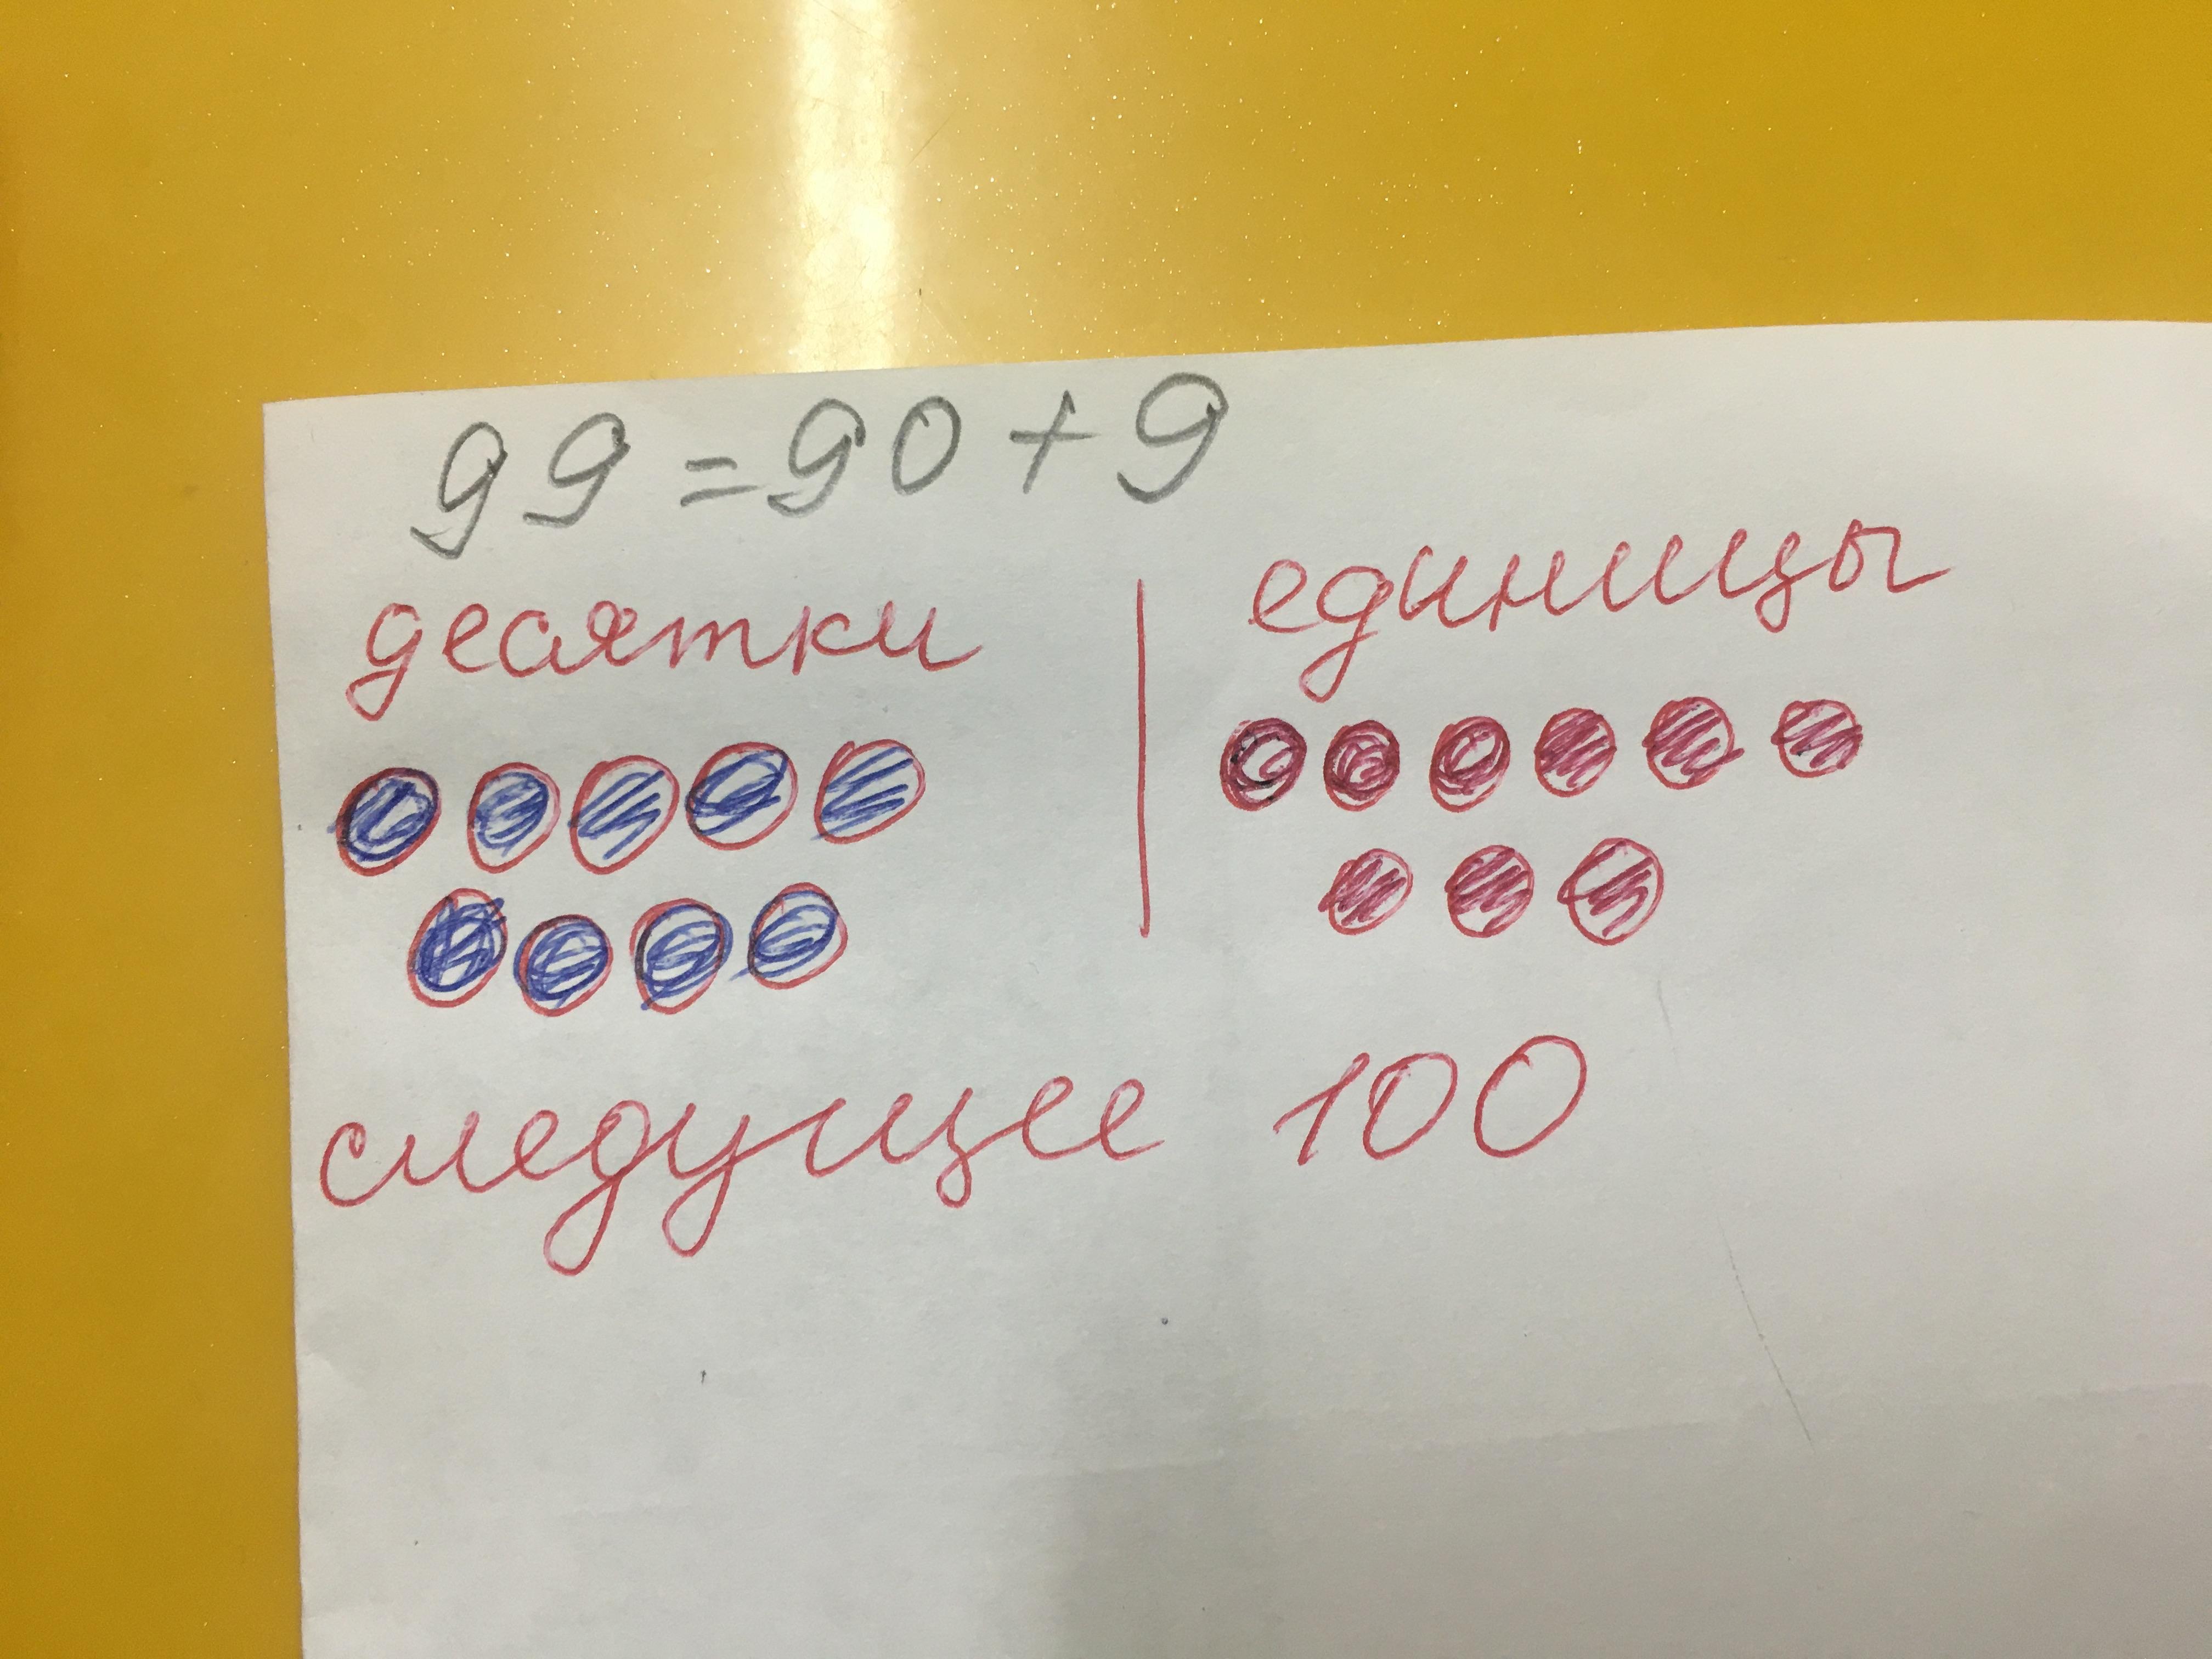 99 = 90 + 9
десятки | единицы
следущее 100